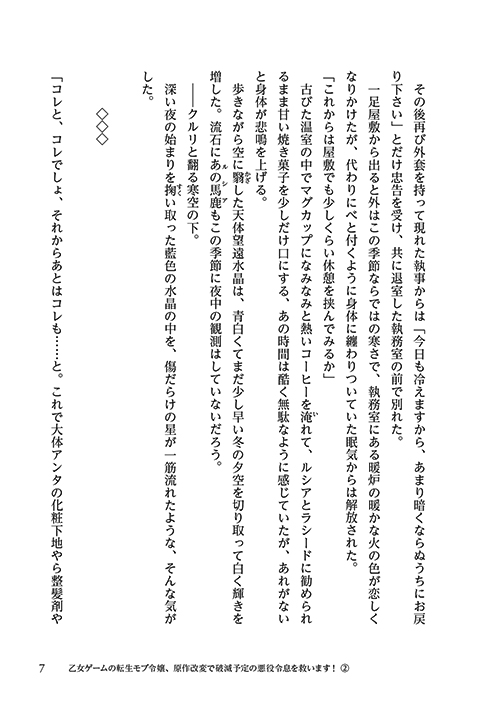 その後再び外套を持って現れた執事からは「今日も冷えますから、あまり暗くならぬうちにお戻
り下さい」とだけ忠告を受け、共に退室した執務室の前で別れた。
一足屋敷から出ると外はこの季節ならではの寒さで、執務室にある暖炉の暖かな火の色が恋しく
なりかけたが、代わりにべと付くように身体に纏わりついていた眠気からは解放された。
「これからは屋敷でも少しくらい休憩を挟んでみるか」
古びた温室の中でマグカップになみなみと熱いコーヒーを淹れて、ルシアとラシードに勧められ
るまま甘い焼き菓子を少しだけ口にする、あの時間は酷く無駄なように感じていたが、あれがない
と身体が悲鳴を上げる。
歩きながら空に翳した天体望遠水晶は、青白くてまだ少し早い冬の夕空を切り取って白く輝きを
増した。流石にあの馬鹿もこの季節に夜中の観測はしていないだろう。
――クルリと翻る寒空の下。
深い夜の始まりを掬い取った藍色の水晶の中を、傷だらけの星が一筋流れたような、そんな気が
した。
◇◇◇
「コレと、コレでしょ、それからあとはコレも……と。これで大体アンタの化粧下地やら整髪剤や
7 乙女ゲームの転生モブ令嬢、原作改変で破滅予定の悪役令息を救います！②